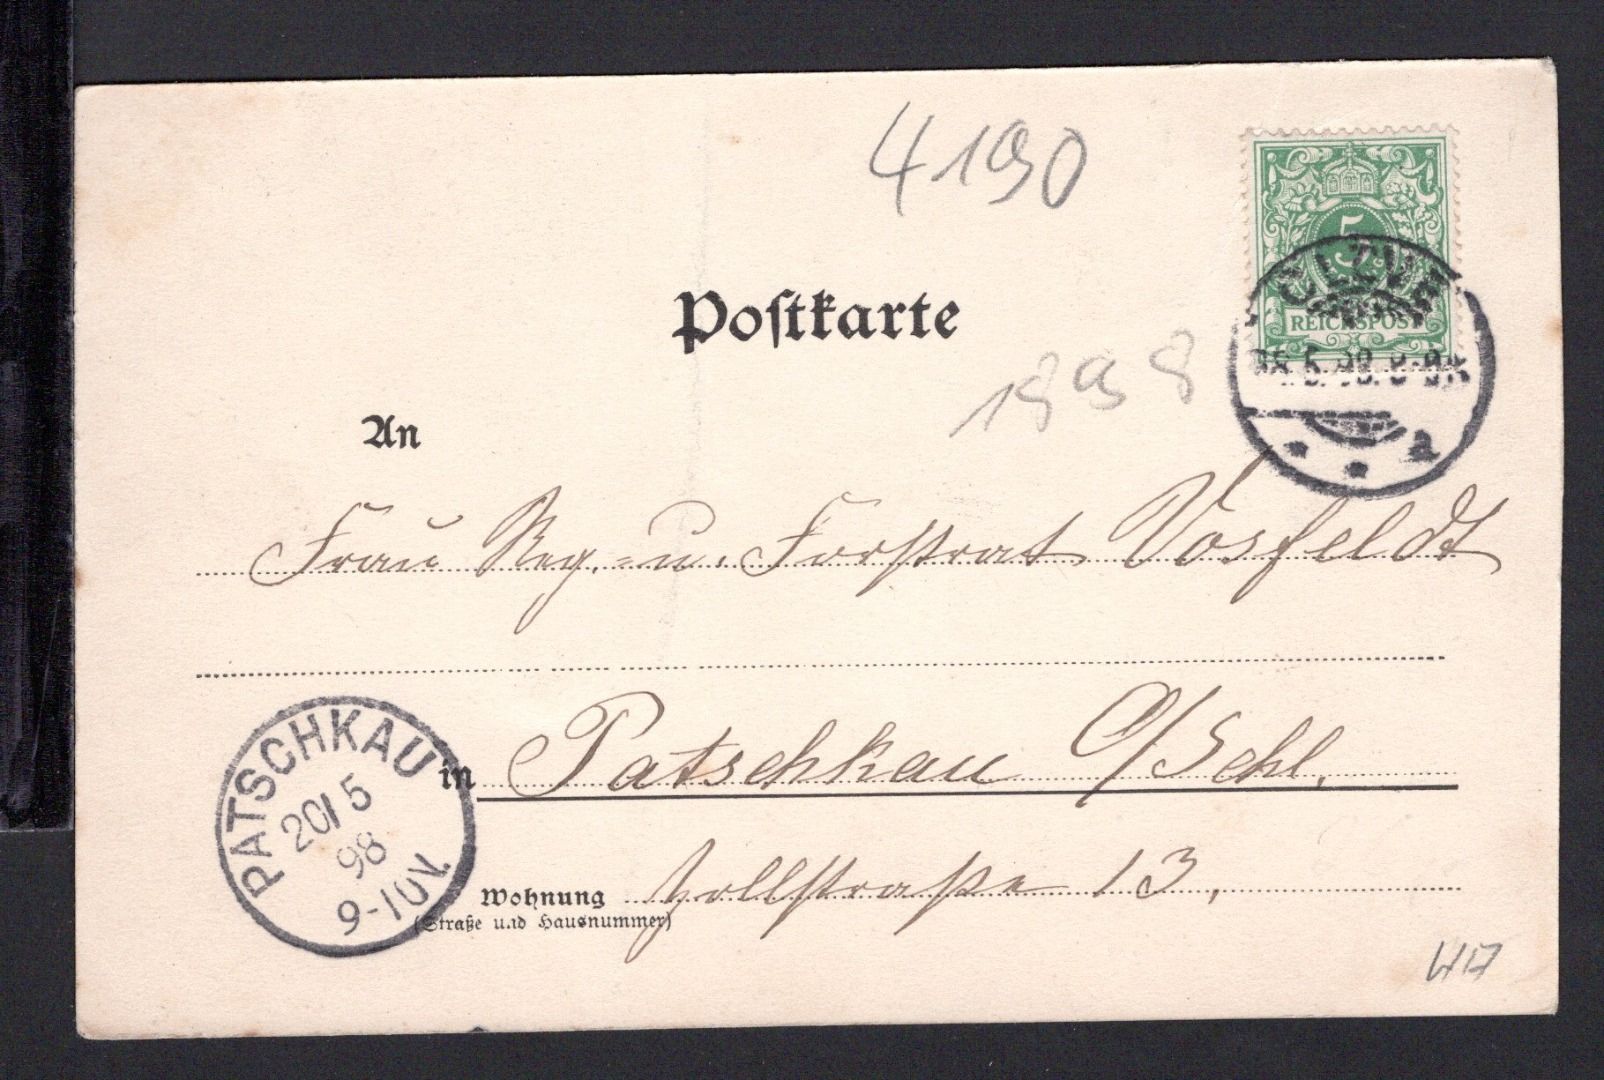 4190
5
REICHSPOST
CLEVE
5.98.8-9
a
Postkarte
1898
An
Frau Reg.-u. Forstrat Vosfeldt
in Patschkau O/Schl.
PATSCHKAU
20/5
98
9-10V.
Wohnung Zollstraße 13.
(Straße und Hausnummer)